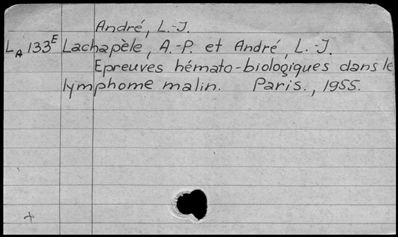 André, L.-J.
LA 133E Lachapèle, A.-P. et André, L.-J.
Epreuves hémato-biologiques dans le
lymphome malin. Paris., 1955.
+